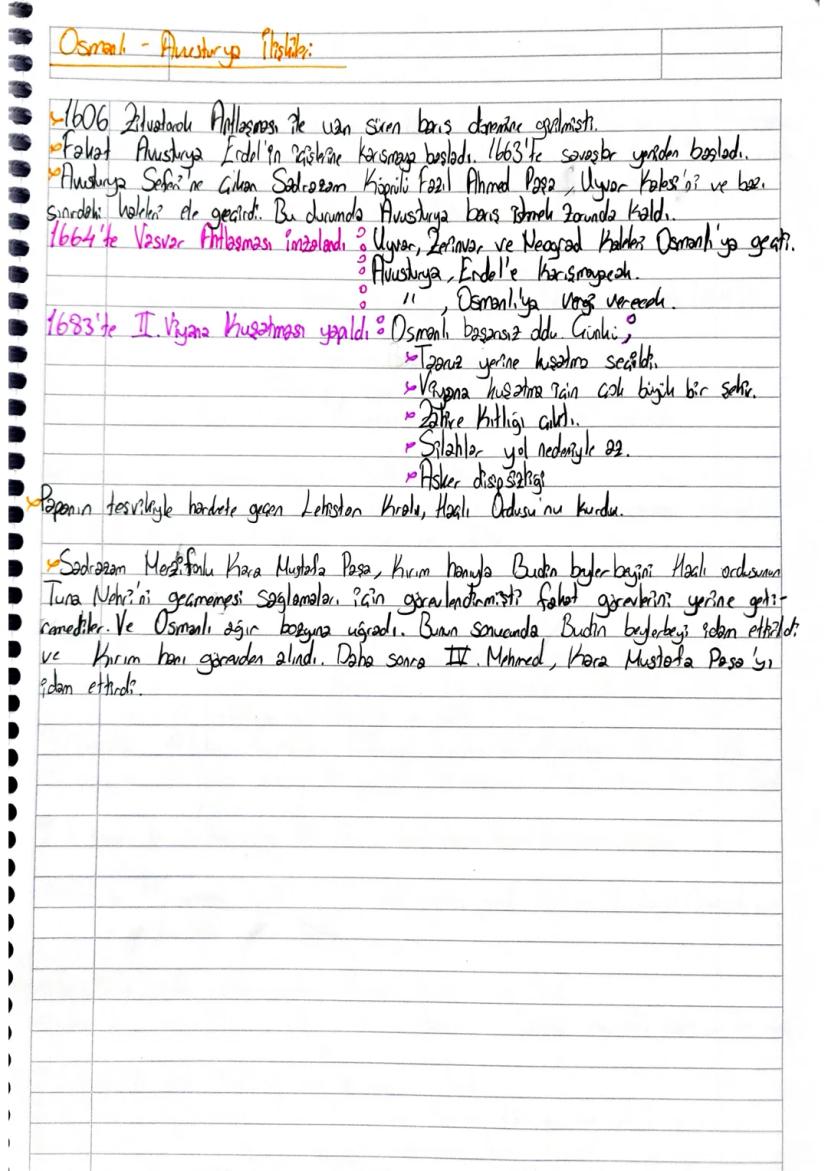 Osmanlı - Avusturya İlişkileri
1606 Zitvatorok Antlaşması ile uzun süren barış dönemine girilmişti.
Fakat Avusturya Erdel'in içişlerine karışmaya başladı. 1663'te savaşlar yeniden başladı.
Avusturya Seferi'ne Çıkan Sadrazam Köprülü Fazıl Ahmed Paşa, Uyvar Kalesi'ni ve bazı
sınırdaki kaleleri ele geçirdi. Bu durumda Avusturya barış istemek zorunda kaldı.
1664'te Vasvar Antlaşması imzalandı : Uyvar, Zerinvar ve Neograd Kaleleri Osmanlı'ya geçti.
Avusturya, Erdel'e karışmayacak.
" , Osmanlı'ya vergi verecek.
1683'te II. Viyana Kuşatması yapıldı : Osmanlı başarısız oldu. Çünkü;
Taarruz yerine kuşatma seçildi.
Viyana kuşatma için çok büyük bir şehir.
Zahire Kıtlığı çıktı.
Silahlar yol nedeniyle az.
Asker disiplsizliği
Papanın teşvikiyle harekete geçen Lehistan Kralı, Haçlı Ordusu'nu kurdu.
Sadrazam Merzifonlu Kara Mustafa Paşa, Kırım hanıyla Budin beylerbeyini Haçlı ordusunun
Tuna Nehri'ni geçmemesi sağlamaları için görevlendirmişti fakat görevlerini yerine geti-
remediler. Ve Osmanlı ağır bozguna uğradı. Bunun sonucunda Budin beylerbeyi idam ettirildi
ve Kırım hanı görevden alındı. Daha sonra IV. Mehmed, Kara Mustafa Paşa'yı
idam ettirdi.